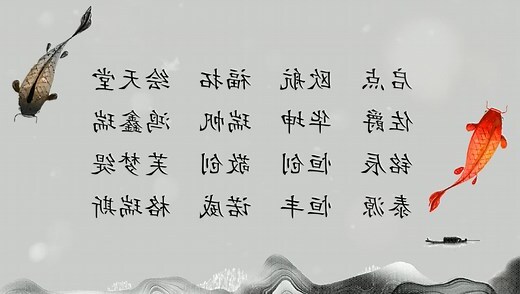 启点 欧航 福拓 绘天堂
佐爵 华坤 瑞帆 鸿鑫瑞
铭辰 恒创 敬创 芙梦缇
泰源 恒丰 诺威 格瑞斯